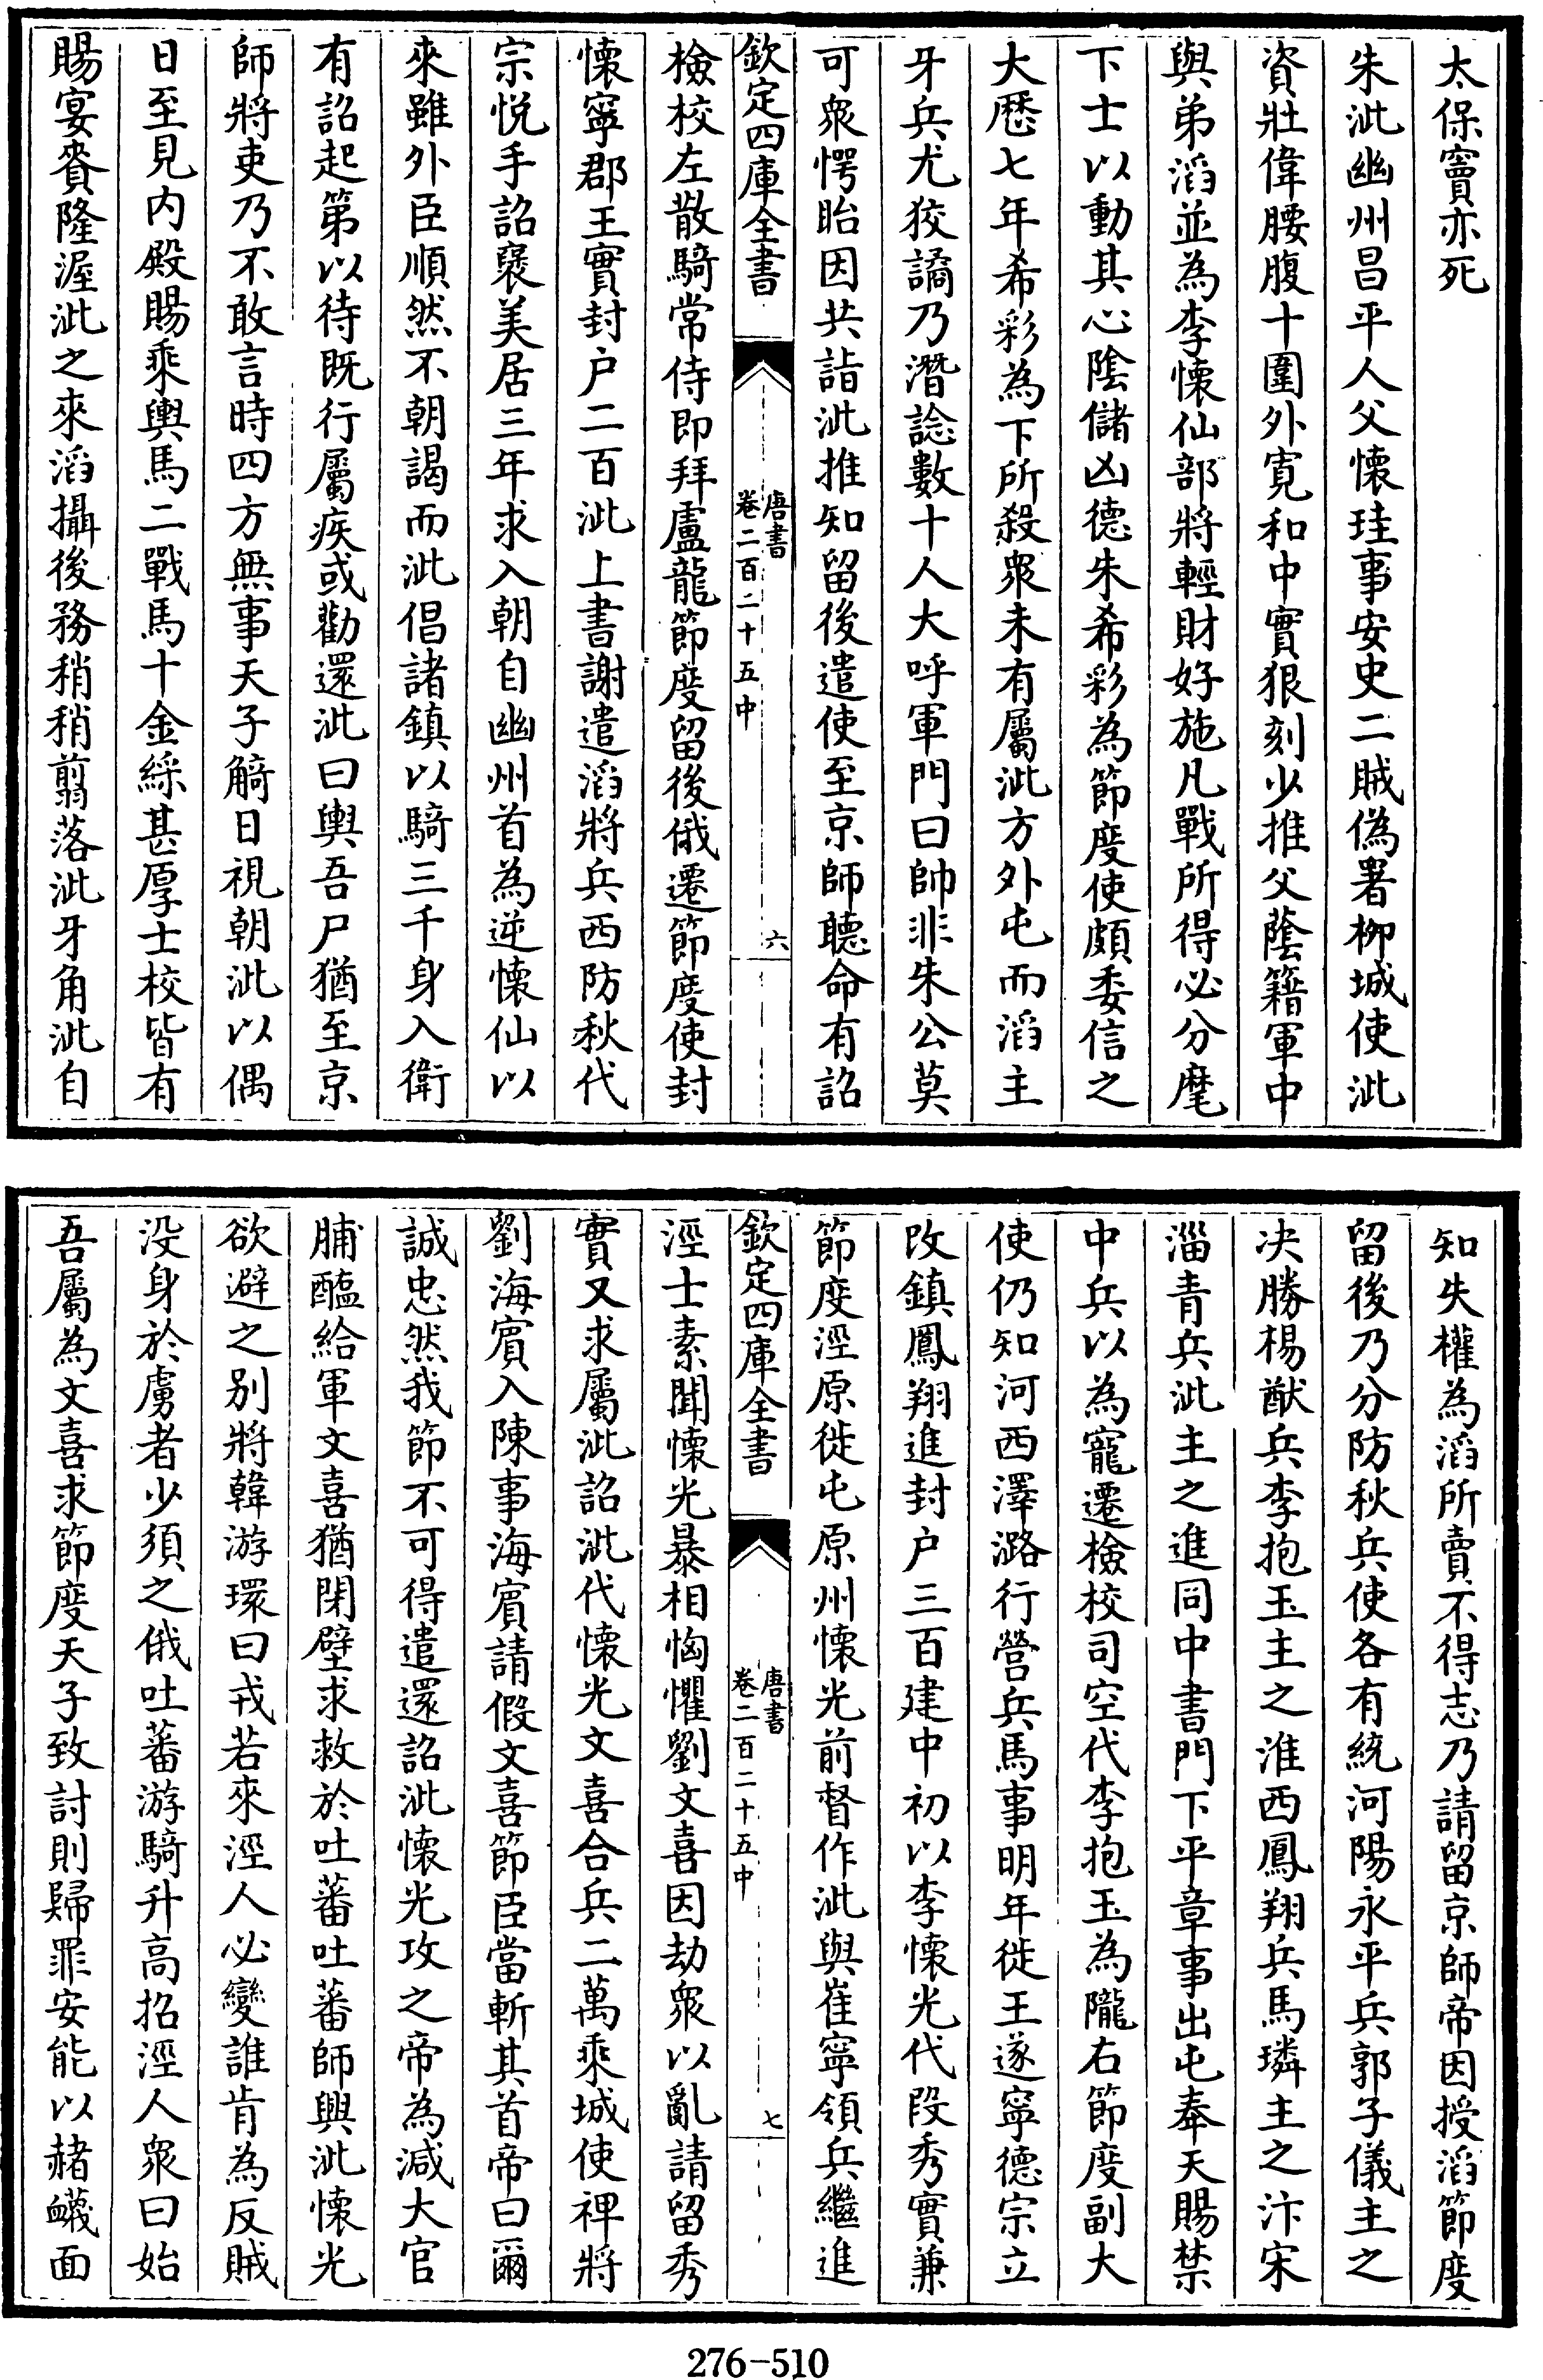 太保竇亦死
朱泚幽州昌平人父懐珪事安史二賊偽署栁城使泚
資壯偉腰腹十圍外寛和中實狠刻少推父蔭籍軍中
與弟滔並為李懐仙部將輕財好施凡戰所得必分麾
下士以動其心陰儲凶德朱希彩為節度使頗委信之
大厯七年希彩為下所殺衆未有屬泚方外屯而滔主
牙兵尤狡譎乃潛諗數十人大呼軍門曰帥非朱公莫
可衆愕眙因共詣泚推知留後遣使至京師聽命有詔
欽定四庫全書
唐書
卷二百二十五中
六
檢校左散騎常侍即拜盧龍節度留後俄遷節度使封
懐寧郡王實封户二百泚上書謝遣滔將兵西防秋代
宗悦手詔襃美居三年求入朝自幽州首為逆懐仙以
來雖外臣順然不朝謁而泚倡諸鎮以騎三千身入衛
有詔起第以待既行屬疾或勸還泚曰輿吾尸猶至京
師將吏乃不敢言時四方無事天子觭日視朝泚以偶
日至見内殿賜乘輿馬二戰馬十金綵甚厚士校皆有
賜宴賚隆渥泚之來滔攝後務稍稍翦落泚牙角泚自
知失權為滔所賣不得志乃請留京師帝因授滔節度
留後乃分防秋兵使各有統河陽永平兵郭子儀主之
決勝楊猷兵李抱玉主之淮西鳳翔兵馬璘主之汴宋
淄青兵泚主之進同中書門下平章事出屯奉天賜禁
中兵以為寵遷檢校司空代李抱玉為隴右節度副大
使仍知河西澤潞行營兵馬事明年徙王遂寧德宗立
改鎮鳳翔進封户三百建中初以李懐光代段秀實兼
節度涇原徙屯原州懐光前督作泚與崔寧領兵繼進
欽定四庫全書
唐書
卷二百二十五中
七
涇士素聞懐光暴相恟懼劉文喜因劫衆以亂請留秀
實又求屬泚詔泚代懐光文喜合兵二萬乘城使裨將
劉海賓入陳事海賓請假文喜節臣當斬其首帝曰爾
誠忠然我節不可得遣還詔泚懐光攻之帝為減大官
脯醢給軍文喜猶閉壁求救於吐蕃吐蕃師興泚懐光
欲避之別將韓游環曰戎若來涇人必變誰肯為反賊
没身於虜者少須之俄吐蕃游騎升高招涇人衆曰始
吾屬為文喜求節度天子致討則歸罪安能以赭衊面
276-510